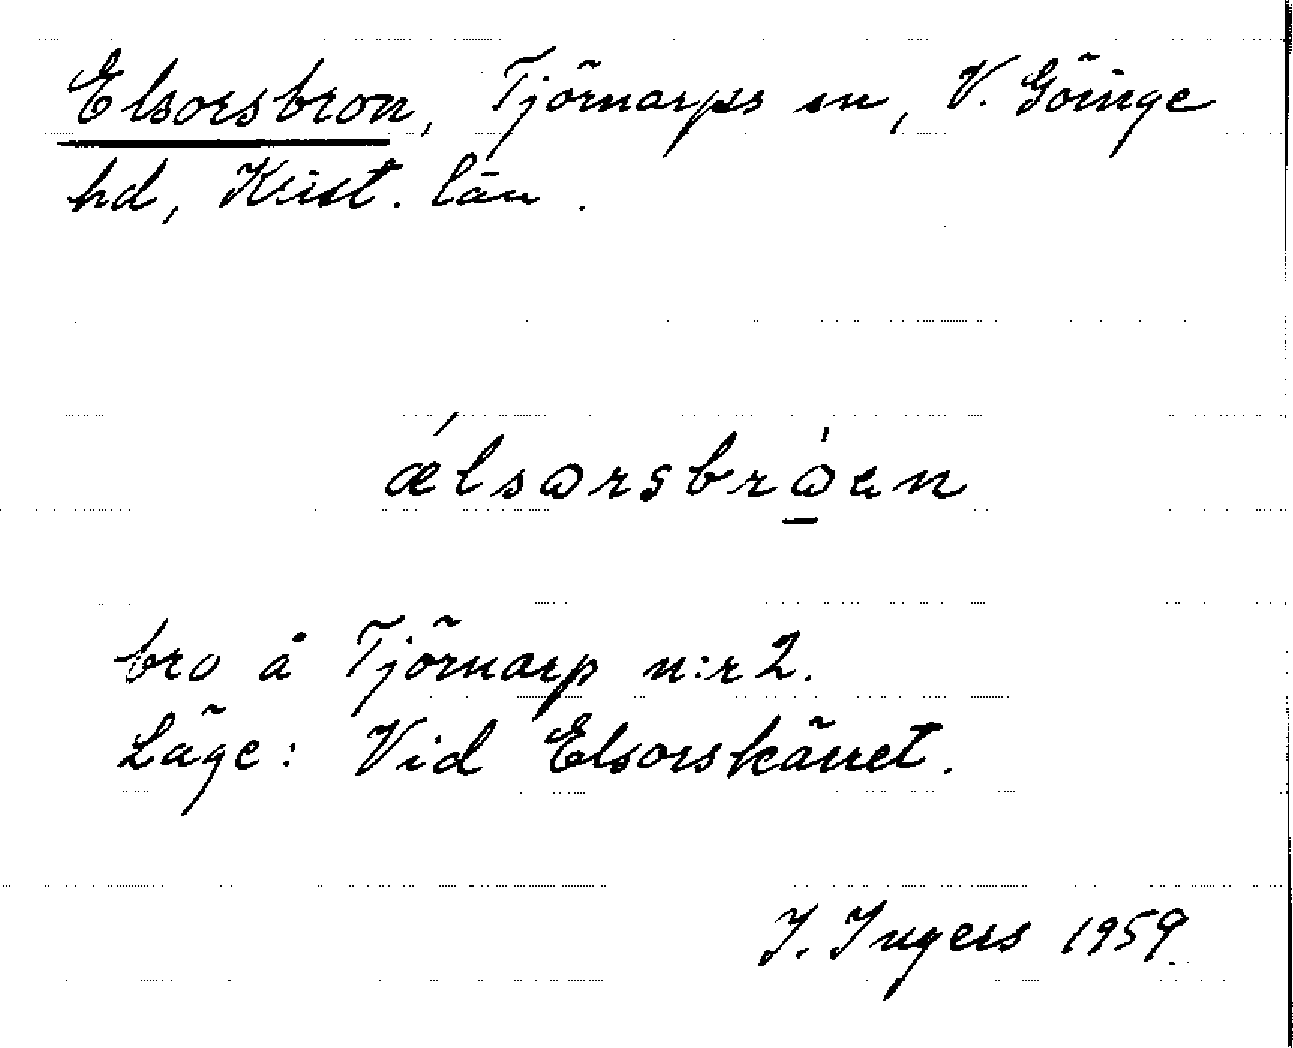 Elsorsbron, Tjörnarps sn, V. Göinge
hd, Krist. län.
ǽlsɷrsbrɷ̀en
bro å Tjörnarp n:r 2.
Läge: Vid Elsorskärret.
I. Ingers 1959.